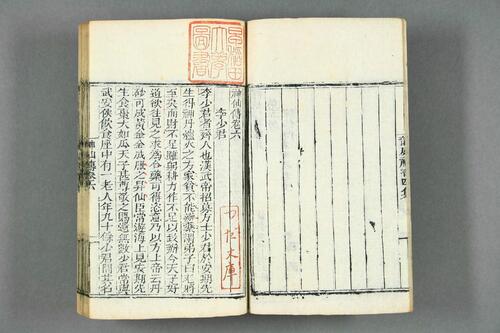 神仙傳卷六
李少君
李少君者齊人也漢武帝招募方士少君於安期先
生得神丹爐火之方家貧不能辦藥謂弟子曰老將
至矣而財不足雖躬耕力作不足以致辦今天子好
道欲往見之求爲合藥可得恣意乃以方上帝云丹
砂可成黃金金成服之昇仙臣常遊海上見安期先
生食棗大如瓜天子甚尊敬之賜遺無數少君嘗與
武安侯飲食座中有一老人年九十餘少君問其名
神仙傳卷六